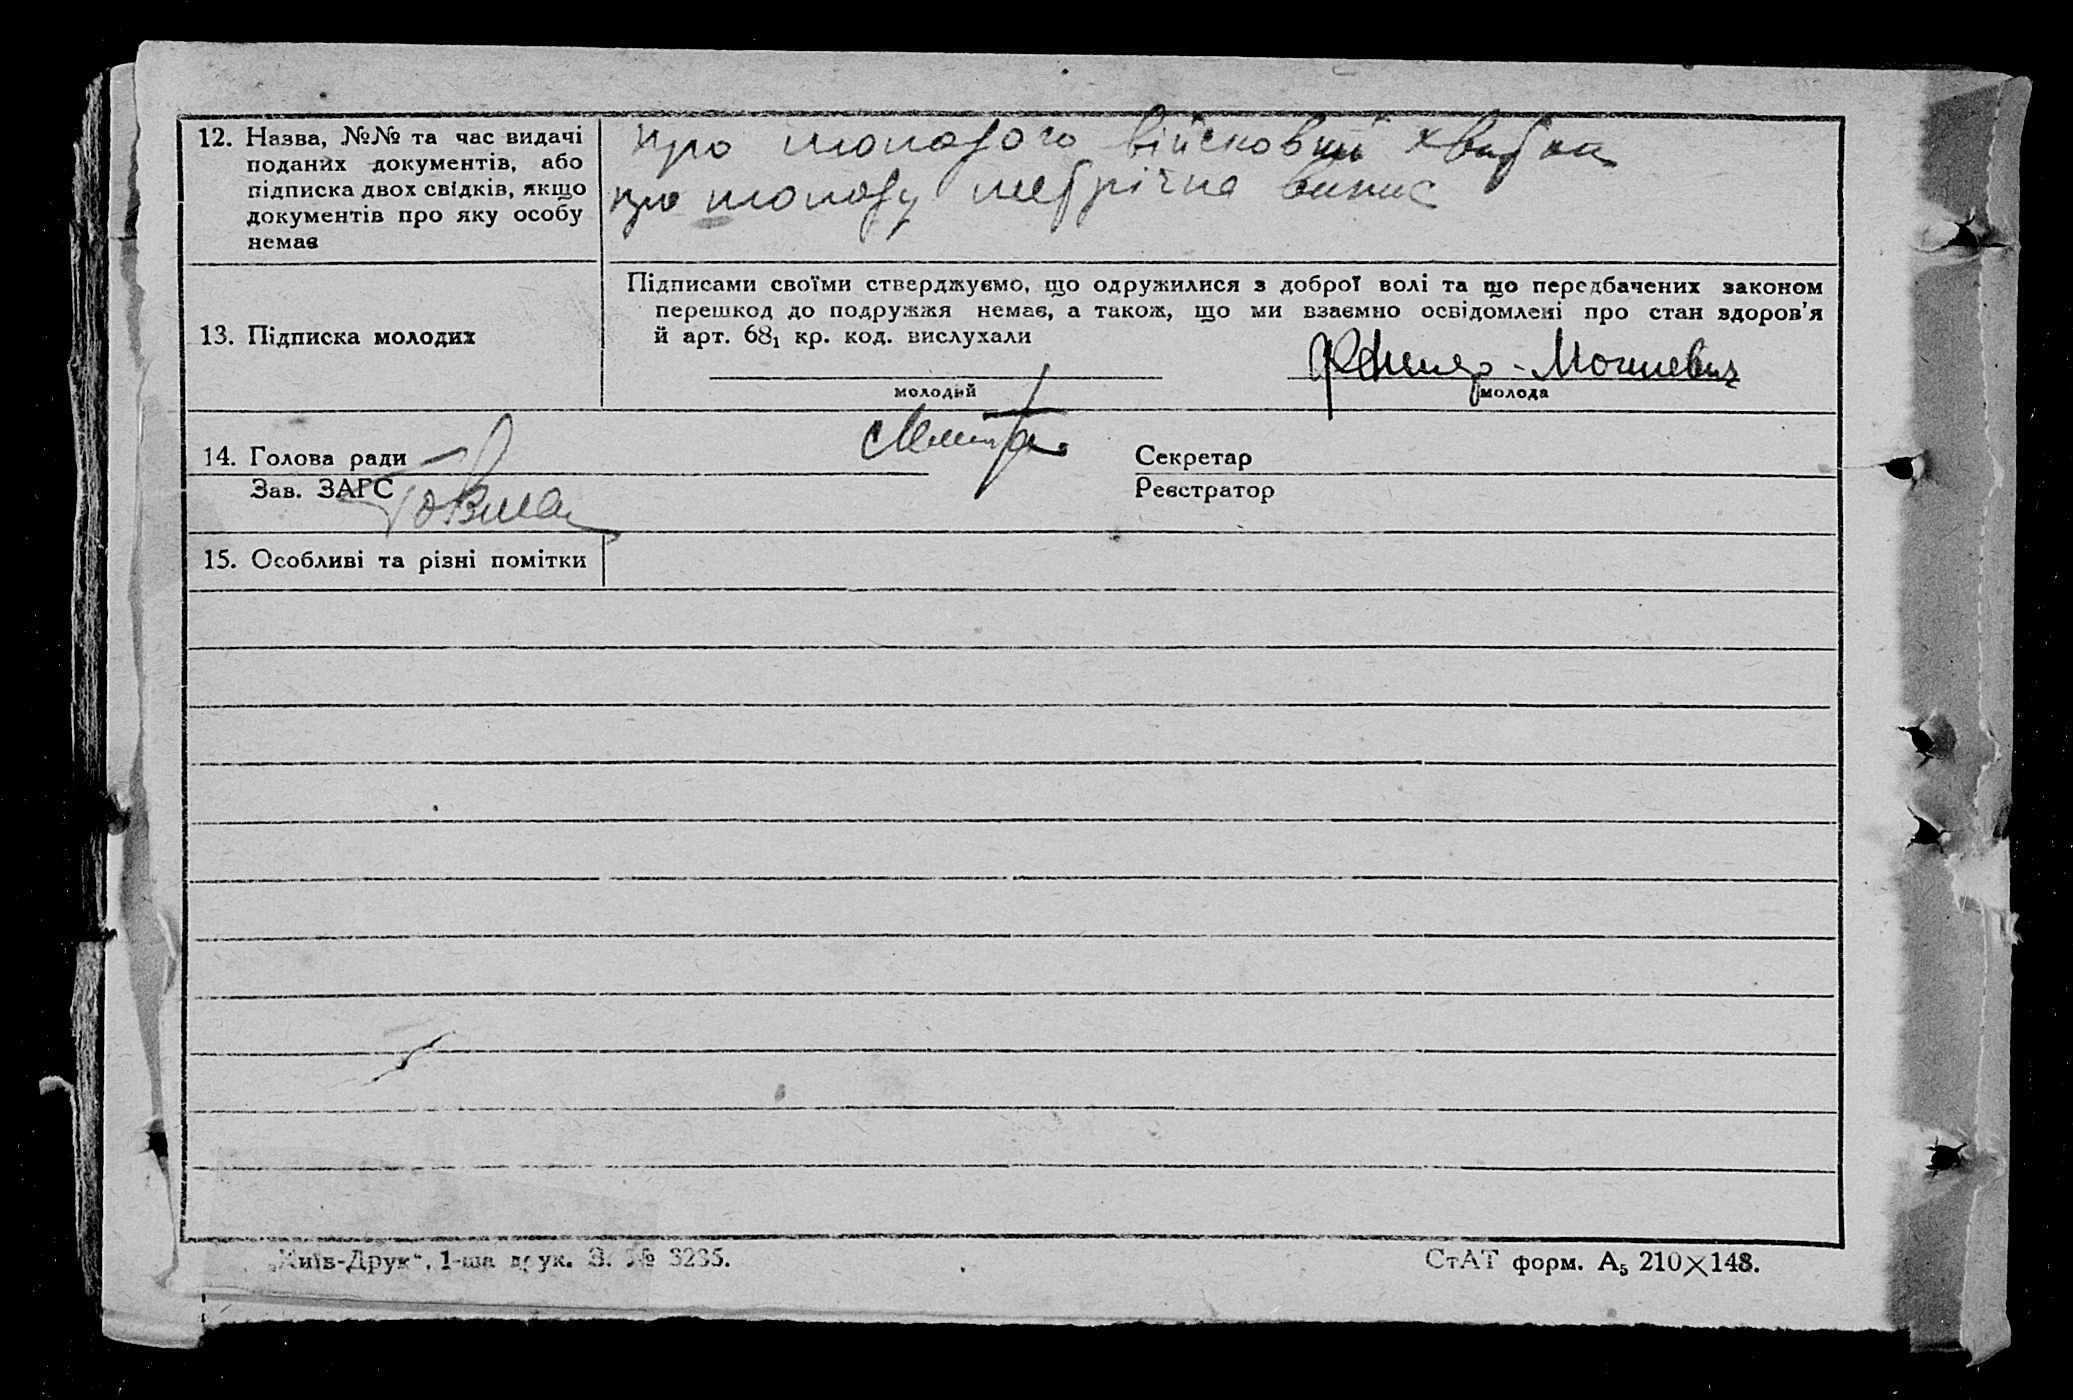 12. Назва, №№ та час видачі
поданих документів, або
підписка двох свідків, якщо
документів про яку особу
немає
про молодого військовий квиток
про молоду метрична випис
13. Підписка молодих
Підписами своїми стверджуємо, що одружилися з доброї волі та що передбачених законом
перешкод до подружжя немає, а також, що ми взаємно освідомлені про стан здоров'я
й арт. 68₁ кр. код. вислухали
молодий
молода
14. Голова ради
Секретар
Зав. ЗАГС
Реєстратор
15. Особливі та різні помітки
„Київ-Друк“. 1-ша друк. З. № 3235.
СтАТ форм. А₅ 210×148.